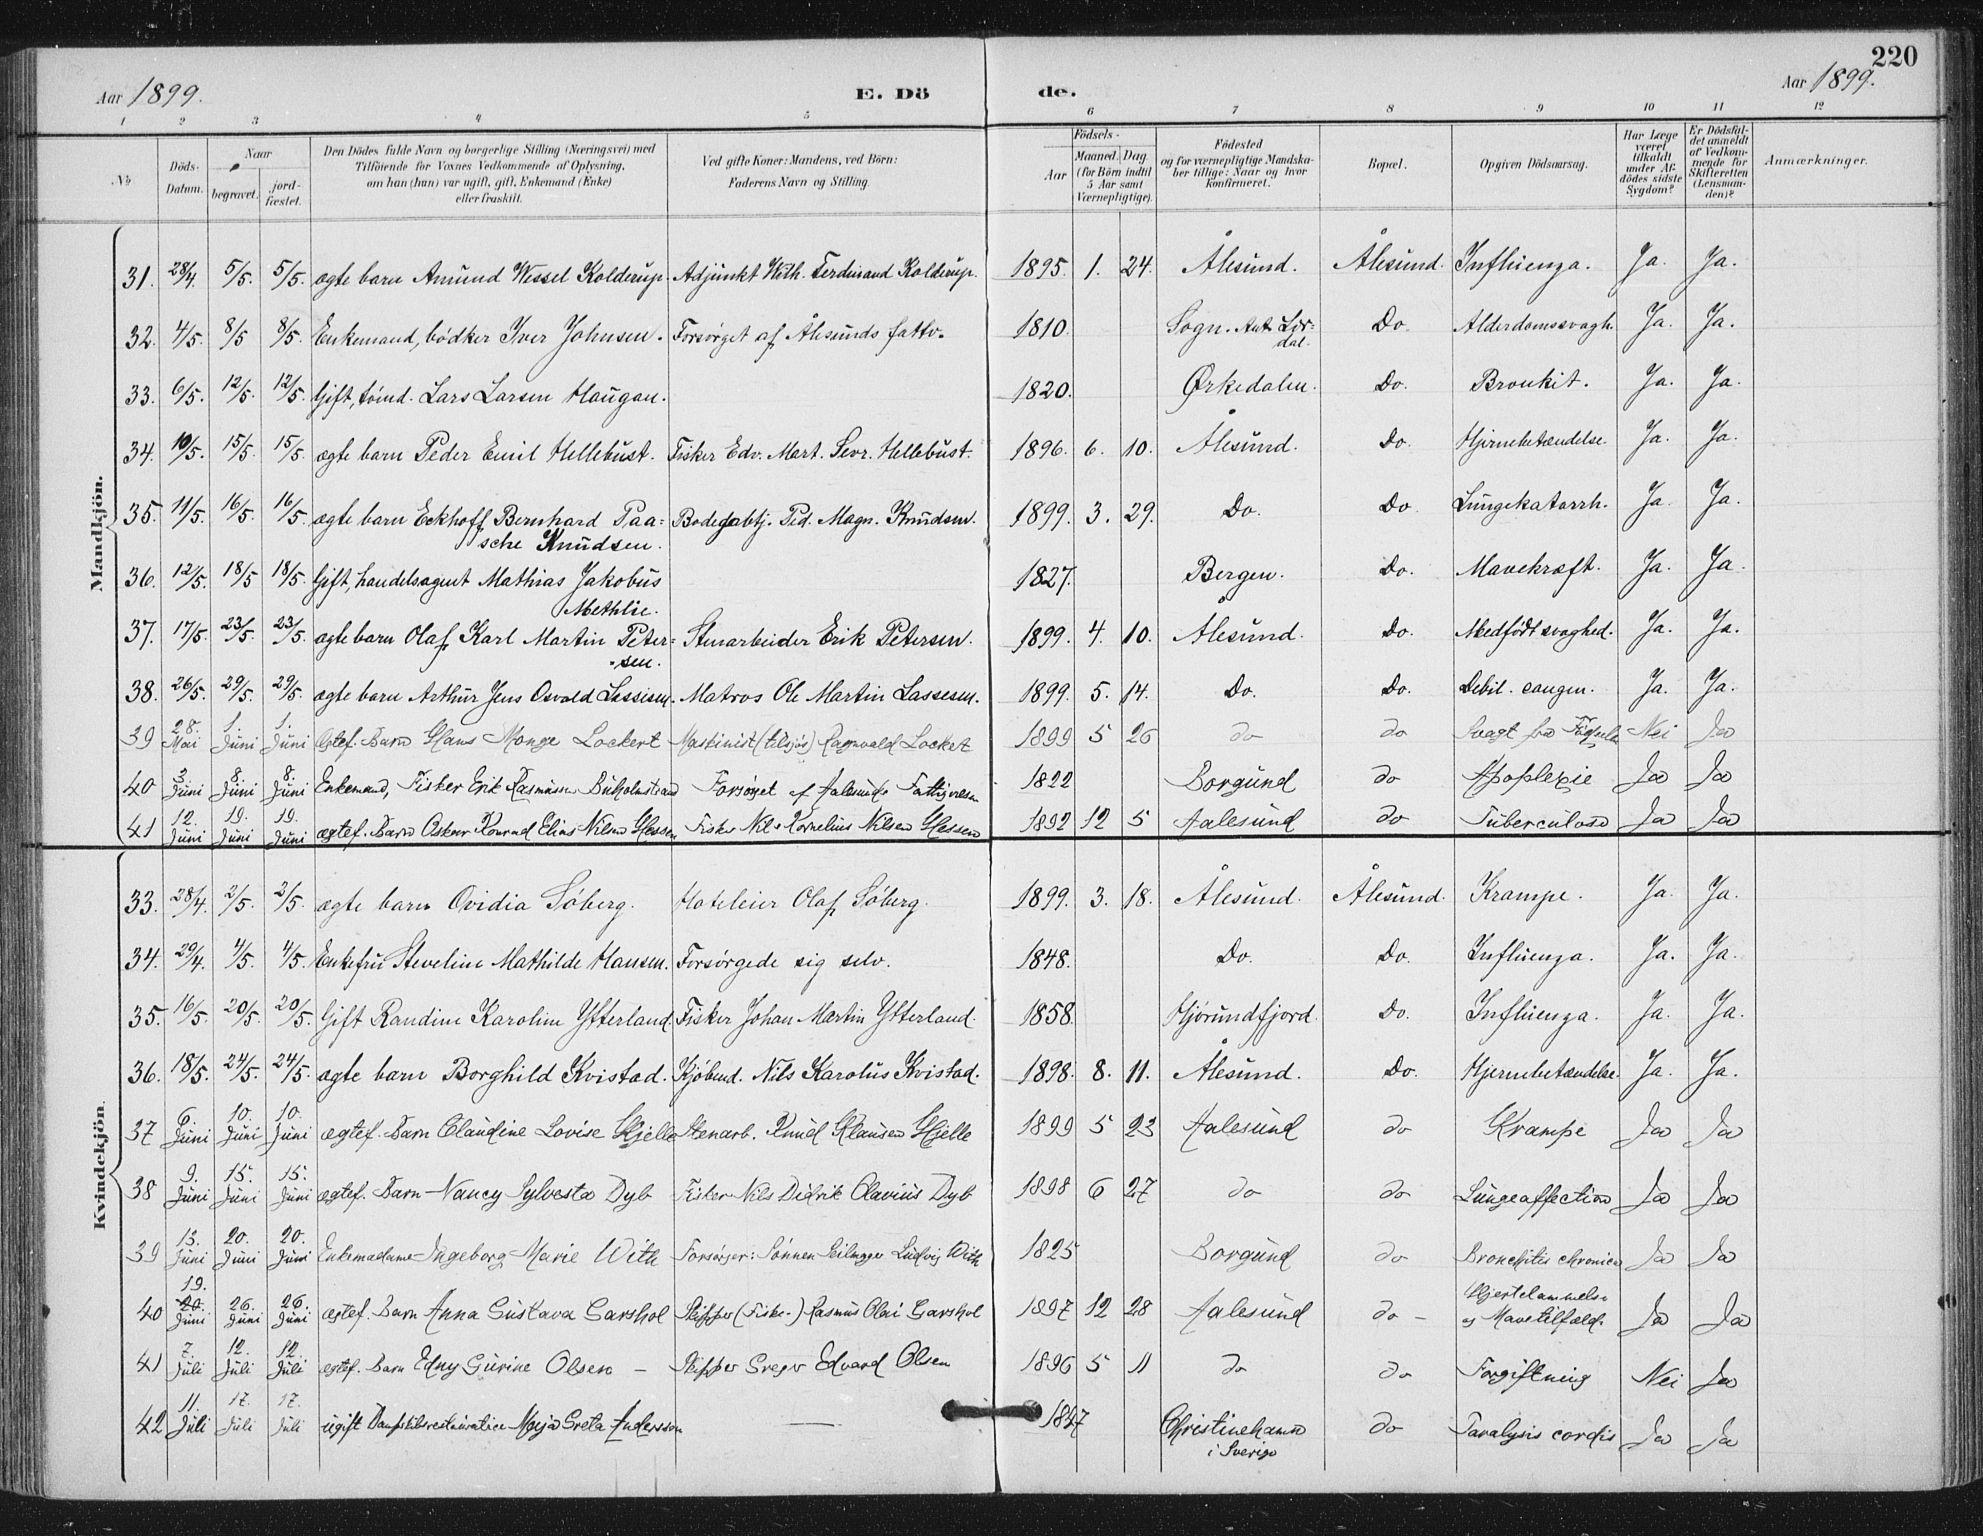 220
Aar 1899. E. Dö de. Aar 1899.
1 2 3 4 5 6 7 8 9 10 11 12
No
Döds-Datum.
Naar
begravet.
jord-fæstet.
Den Dödes fulde Navn og borgerlige Stilling (Næringsvei) med
Tilföiende for Voxnes Vedkommende af Oplysning,
om han (hun) var ugift, gift, Enkemand (Enke)
eller fraskilt.
Ved gifte Koner: Mandens, ved Börn:
Faderens Navn og Stilling.
Födsels-
Aar
Maaned. Dag
(for Börn indtil
5 Aar samt
Værnepligtige).
Födested
og for værnepligtige Mandska-
ber tillige: Naar og hvor
konfirmeret.
Bopæl.
Opgiven Dödsaarsag.
Har Læge
været
tilkaldt
under Af-
dödes sidste
Sygdom?
Er Dödsfal-
det anmeldt
af Vedkom-
mende for
Skifteretten
(Lensman-
den)?
Anmærkninger.
Mandkjön.
31. 28/4. 5/5. 5/5. ægte barn Amund Wessel Kolderup. Adjunkt With. Ferdinand Kolderup. 1895. 1. 24. Ålesund. Ålesund. Influenza. Ja. Ja.
32. 4/5. 8/5 8/5. Enkemand, bødker Iver Johnsen. Forsørget af Ålesunds fattv. 1810. Sogn. Lær-
dal. Do. Alderdomssvagh. Ja. Ja.
33. 6/5. 12/5. 12/5. Gift, Lars Larsen Haugan. 1820. Ørkedalen. Do. Bronkit. Ja. Ja.
34. 10/5. 15/5. 15/5. ægte barn Peder Emil Hellebust. Fisker Edv. Mart. Sevr. Hellebust. 1896. 6. 10. Ålesund. Do. Hjernebetændelse. Ja. Ja.
35. 11/5. 16/5. 16/5. ægte barn Eckhoff Bernhard Paa=
sche Knudsen. Ped. Magn. Knudsen. 1899. 3. 29. Do. Do. Lungekatarrh. Ja. Ja.
36. 12/5. 18/5 18/5. Gift, handelsagent Mathias Jakobus
Methlie. 1827. Bergen. Do. Mavekræft. Ja. Ja.
37. 17/5. 23/5. 23/5. ægte barn Olaf Karl Martin Peter=
sen. Stenarbeider Erik Petersen. 1899. 4. 10. Ålesund. Do. Medfødt svaghed. Ja. Ja.
38. 26/5. 29/5. 29/5. ægte barn Arthur Jens Osvald Lassesen. Matros Ole Martin Lassesen. 1899. 5. 14. Do. Do. Debil. congen. Ja. Ja.
39 28. Mai 1. Juni 1. Juni Ægtef. Barn Hans Monge Lockert Maskinist (tilsjøs) Ragnvald Lockert 1899 5 26 do do Svagt fra Fødselen Nei Ja
40 3 Juni 8. Juni 8. Juni Enkemand, Fisker Erik Rasmussen Buholmstrand Forsørget af Aalesunds Fattigvæsen 1822 Borgund do Apoplexie Ja Ja
41 12. Juni 19. Juni 19. Juni ægtef. Barn Oskar Konrad Elias Nilsen Hessen Fisker Nils Kornelius Nilsen Hessen 1892 12 5 Aalesund do Tuberculose Ja Ja
Kvindekjön.
33. 28/4. 2/5. 2/5. ægte barn Ovidia Søberg. Hoteleier Olaf Søberg. 1899. 3. 18. Ålesund. Ålesund. Krampe. Ja. Ja.
34. 29/4. 4/5. 4/5. Enkefru Steveline Mathilde Hansen. Forsørgede sig selv. 1848. Do. Do. Influenza. Ja. Ja.
35. 16/5. 20/5. 20/5. Gift Randine Karoline Ytterland. Fisker Johan Martin Ytterland. 1858. Hjørundfjord. Do. Influenza. Ja. Ja.
36. 18/5. 24/5. 24/5. ægte barn Borghild Kvistad. Kjøbmd. Nils Karolus Kvistad. 1898. 8. 11. Ålesund. Do. Hjernebetændelse. Ja. Ja.
37 6 Juni 10. Juni 10. Juni ægtef. Barn Claudine Lovise Hjelle Stenarb. Knud Klausen Hjelle 1899 5 23 Aalesund do Krampe Ja Ja
38 9. Juni 15. Juni 15. Juni ægtef. Barn Nancy Sylvesta Dyb Fisker Nils Didrik Olavius Dyb 1898 6 27 do do Lungeaffection Ja Ja
39 13. Juni 20. Juni 20. Juni Enkemadame Ingeborg Marie With Forsørger: Sønnen Seilmager Ludvig With 1825 Borgund do Bronchitis chronica Ja Ja
40 19. 20. Juni 26. Juni 26. Juni ægtef. Barn Anna Gustava Garshol Skipper (Fiske-) Rasmus Olai Garshol 1897 12 28 Aalesund do - Hjertelammelse
og Mavetilfælde Ja Ja
41 7. Juli 12. Juli 12. Juli ægtef. Barn Edny Gurine Olsen - Skipper Greger Edvard Olsen 1896 5 11 do do Forgiftning Nei Ja
42 11. Juli 17. Juli 17. Juli ugift Dampskibsrestauratrice Maja Greta Andersson 1847 Christinehamn
i Sverige do Paralysis cordis Ja Ja